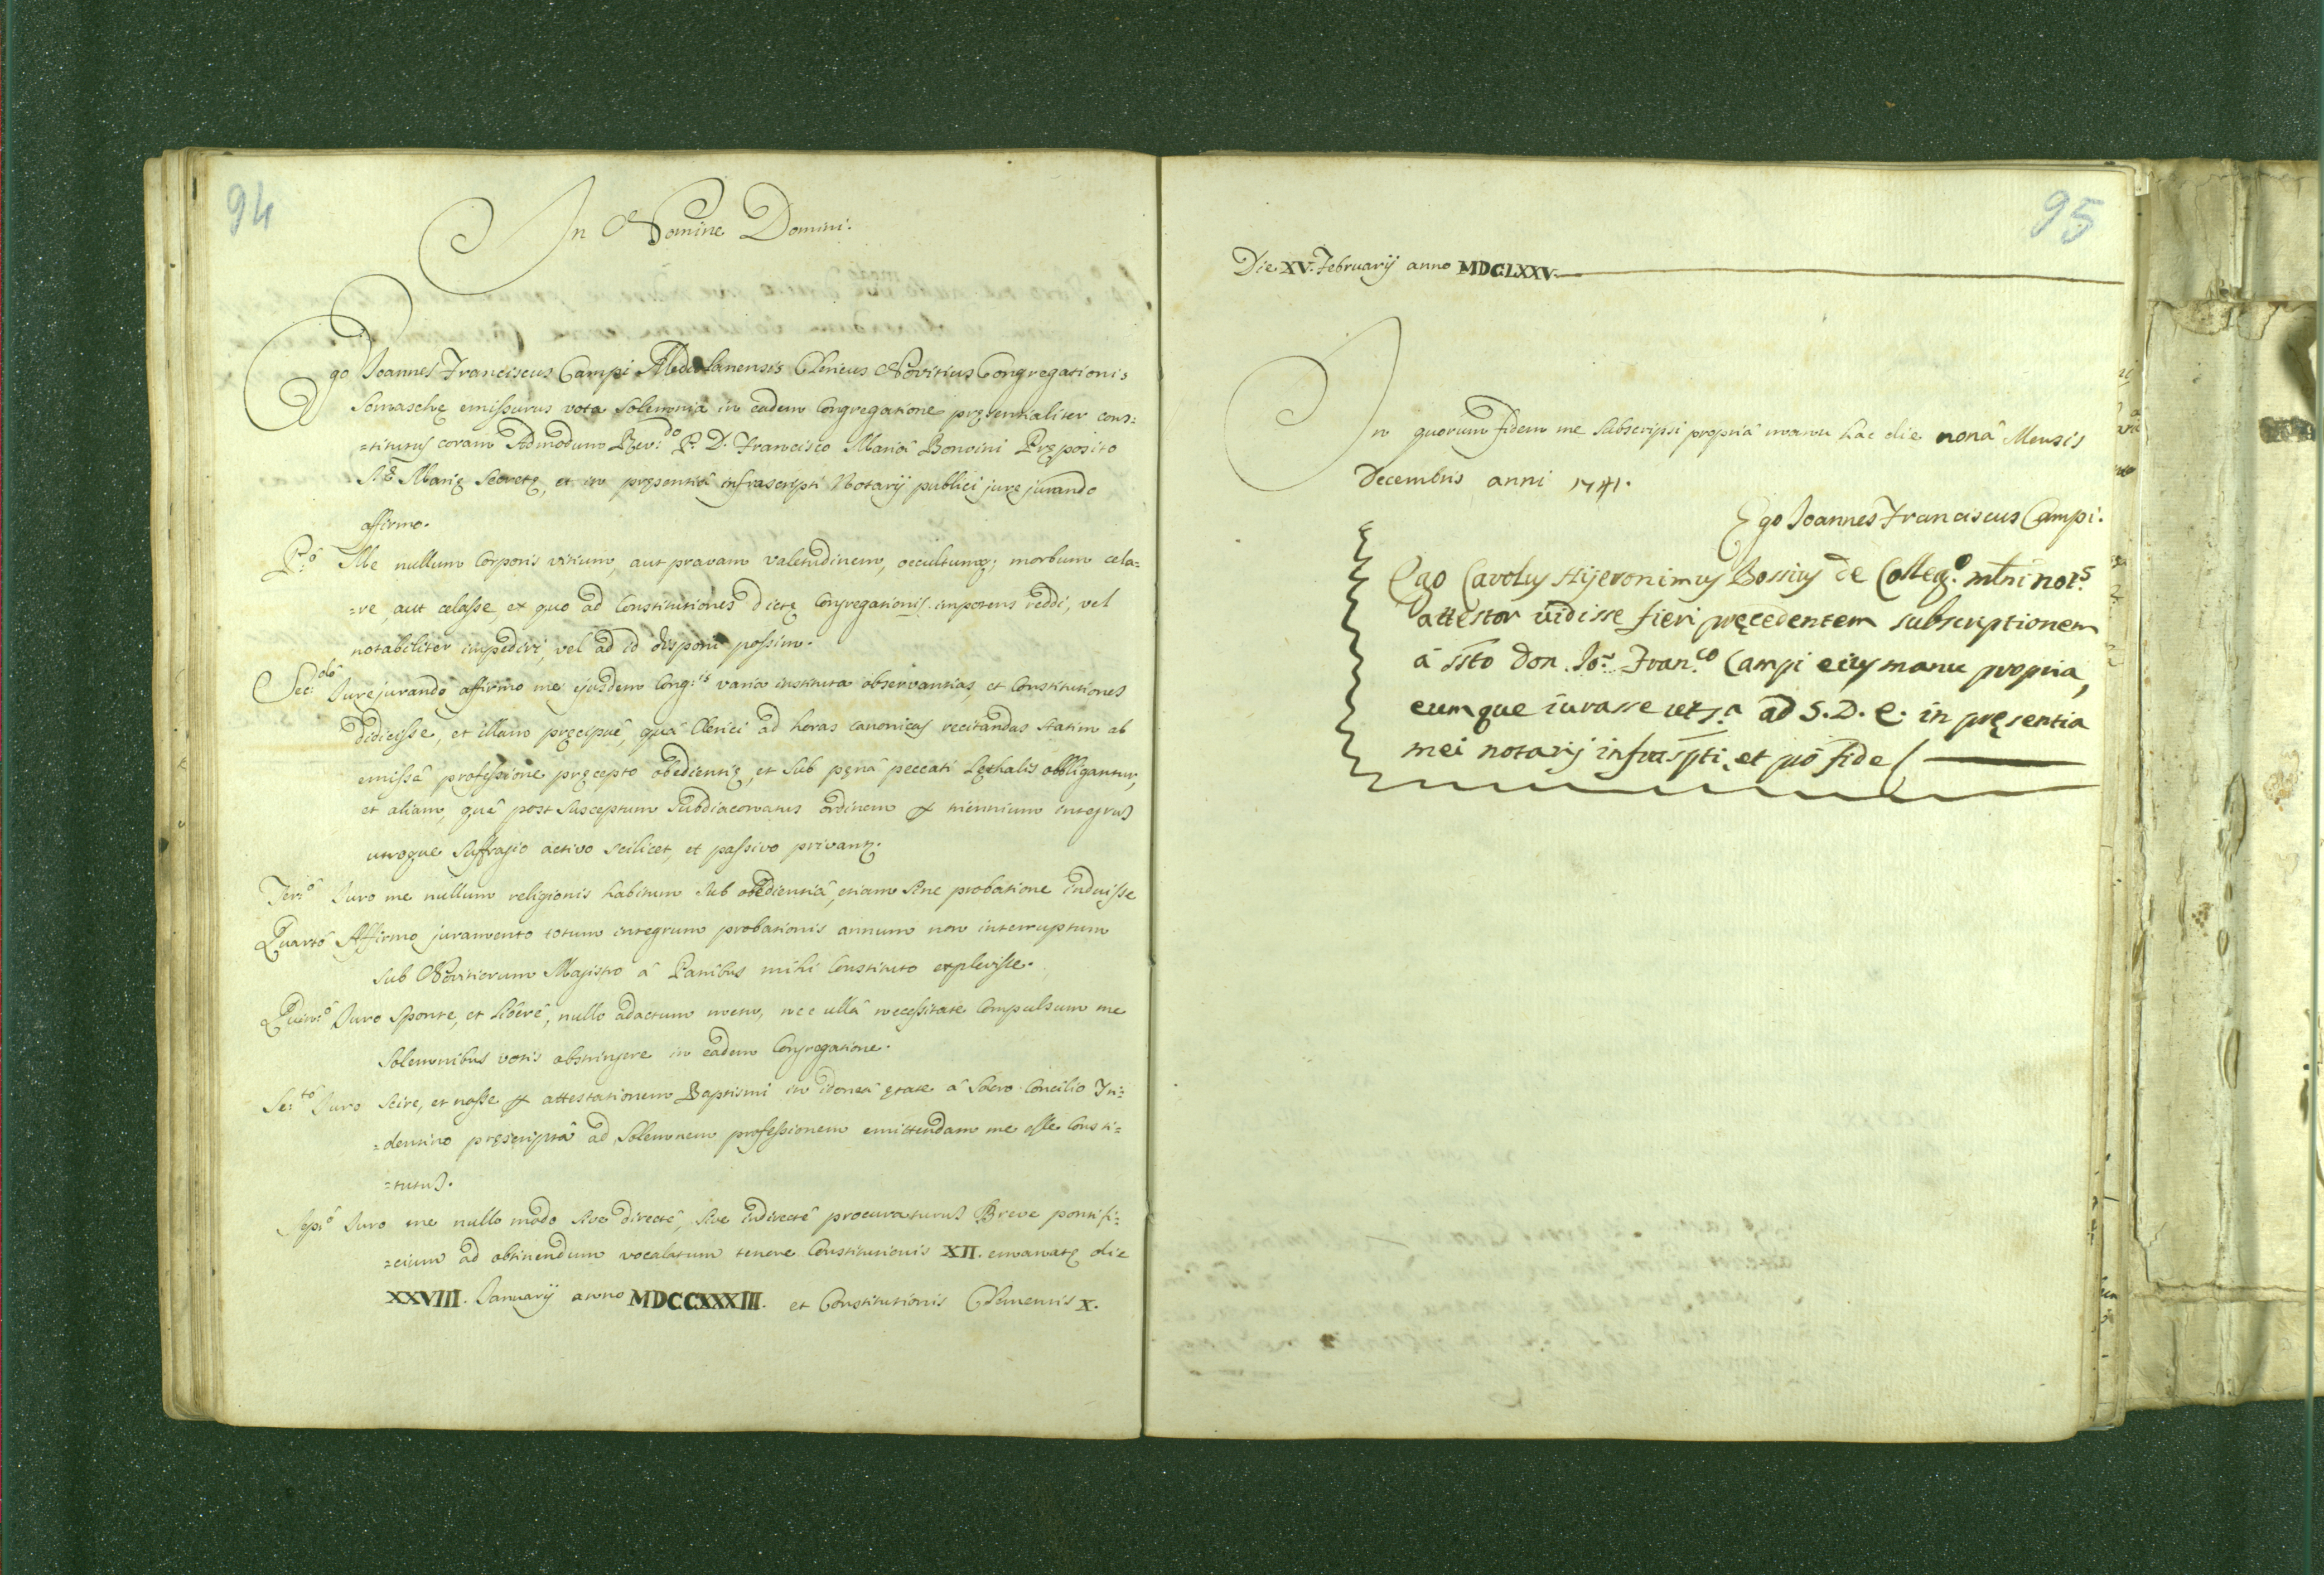 94
In Nomine Domini.
Ego Joannes Franciscus Campi Mediolanensis Clericus Novitius Congregationis
Somaschę emissurus vota solemnia in eadem Congregatione pręsentialiter cons:
=titutus coram Admodum Rev:do P. D. Francisco Mariâ Bonvini Pręposito
S:tę Marię Secretę, et in pręsentiâ infrascripti Notarij publici jure jurando
affirmo.
P:ô Me nullum Corporis vitium, aut pravam valetudinem, occultumq; morbum cela=
=re, aut celasse, ex quo ad Constitutiones dictę Congregationis impotens reddi, vel
notabiliter impediri, vel ad id disponi possim.
Sec:dô Jurejurando affirmo me ejusdem Cong:is varia instituta observantias, et Constitutiones
didicisse, et illam pręcipuê, quâ Clerici ad horas canonicas recitandas statim ab
emissâ professione pręcepto obedientię, et sub pęnâ peccati Lęthalis obbligantur,
et aliam, quâ post susceptum Subdiaconatus ordinem p triennium integrus
utroque suffragio activo scilicet, et passivo privantę.
Teri:ô Juro me nullum religionis habitum sub obedientiâ, etiam sine probatione induisse
Quartô Affirmo juramento totum integrum probationis annum non interruptum
sub Novitiorum Magistro â Patribus mihi Constituto explevisse.
Quin:ô Juro sponte, et liberê, nullo adactum metu, nec ullâ necessitate Compulsum me
solemnibus votis abstringere in eadem Congregatione.
Se:tô Juro scire, et nosse p attestationem Baptismi in idoneâ ętate â Sacro Concilio Tri=
=dentino pręscriptâ ad solemnem professionem emittendam me esse Consti=
=tutus.
Sepi:ô Juro me nullo modo sive directê, sive indirectê procuraturus Breve pontifi=
=cium ad obtinendum vocalatum tenore Constitutionis XII. emanatę die
XXVIII. Januarij anno MDCCXXXIII. et Constitutionis Clementis X.
95
Die XV. Februarij anno MDCLXXV.
In quorum fidem me subscripsi propriâ manu hac die nonâ Mensis
Decembris anni 1741.
Ego Joannes Franciscus Campi.
Ego Carolus Hijeronimus Bossius de Colleg.o mlni not.s
attestor vidisse fieri pręcedentem subscriptionem
â ssto Don Jo: Fran.co Campi eius manu propria,
eumque iurasse ut s.a ad S. D. E. in pręsentia
mei notarij infraspti, et pro fide